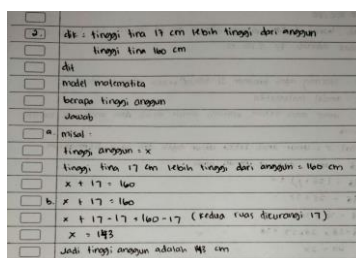 2. dik : tinggi tina 17 cm lebih tinggi dari anggun
tinggi tina 160 cm
dit
model matematika
berapa tinggi anggun
Jawab
a. misal :
tinggi anggun = x
tinggi tina 17 cm lebih tinggi dari anggun = 160 cm
x + 17 = 160
b. x + 17 = 160
x + 17 - 17 = 160 - 17 (kedua ruas dikurangi 17)
x = 143
Jadi tinggi anggun adalah 143 cm